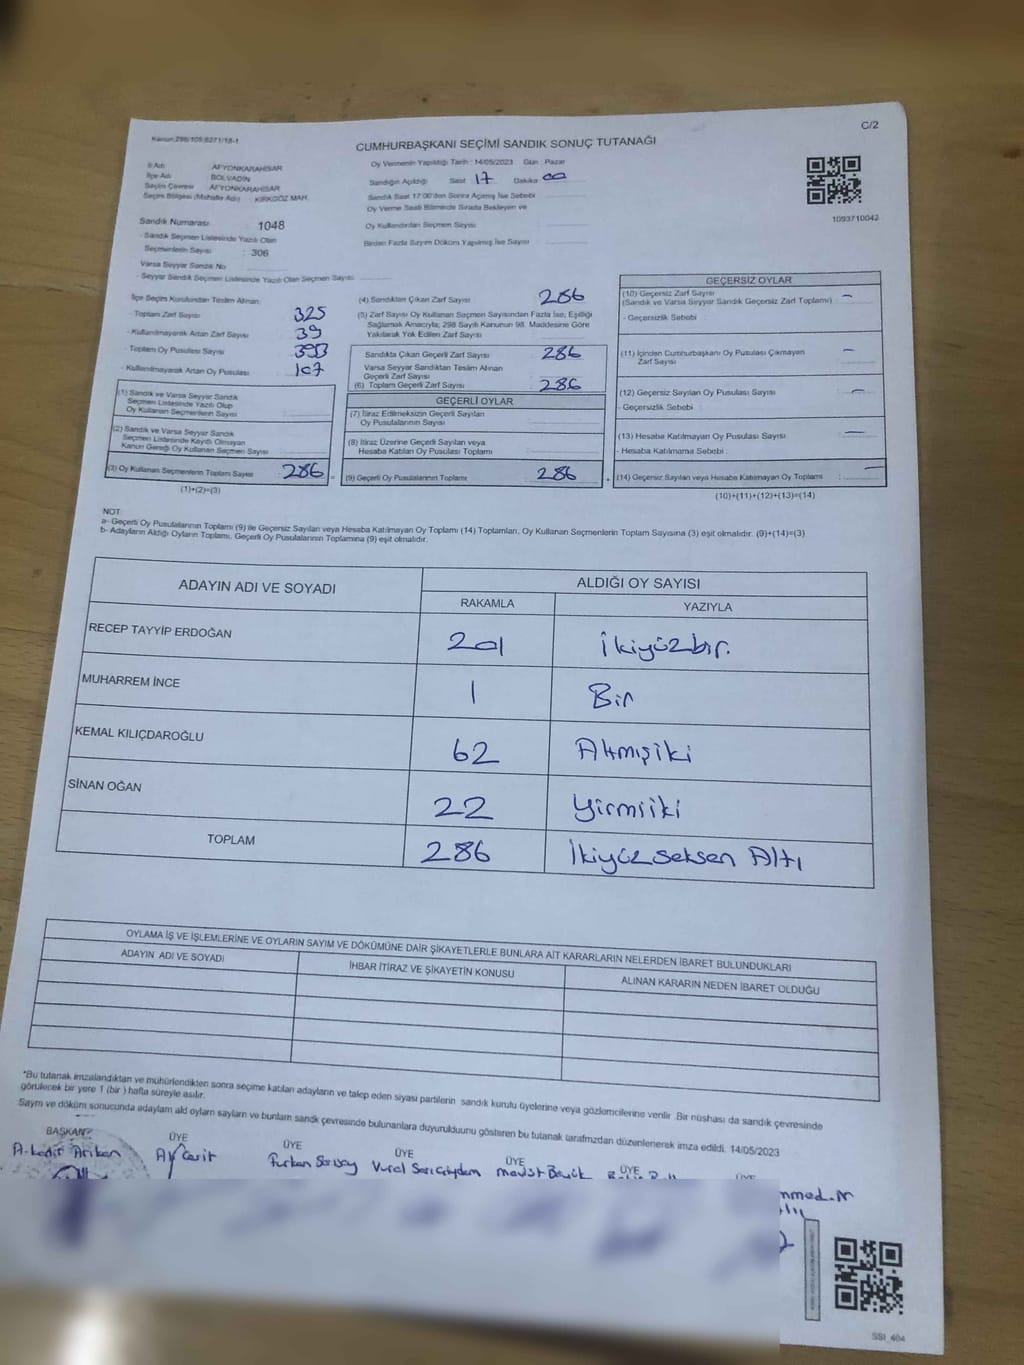 C/2
Kanun:298/105-6271/18-1
CUMHURBAŞKANI SEÇİMİ SANDIK SONUÇ TUTANAĞI
İl Adı AFYONKARAHİSAR
İlçe Adı BOLVADİN
Seçim Çevresi AFYONKARAHİSAR
Seçim Bölgesi (Mahalle Adı) KIRKGÖZ MAH.
Oy Vermenin Yapıldığı Tarih : 14/05/2023 Gün : Pazar
Sandığın Açıldığı Saat 17 Dakika 00
Sandık Saat 17:00'den Sonra Açılmış İse Sebebi
Oy Verme Saati Bitiminde Sırada Bekleyen ve
Oy Kullandırılan Seçmen Sayısı
Birden Fazla Sayım Döküm Yapılmış İse Sayısı
1093710042
Sandık Numarası 1048
- Sandık Seçmen Listesinde Yazılı Olan
Seçmenlerin Sayısı : 306
Varsa Seyyar Sandık No
- Seyyar Sandık Seçmen Listesinde Yazılı Olan Seçmen Sayısı
İlçe Seçim Kurulundan Teslim Alınan:
- Toplam Zarf Sayısı 325
- Kullanılmayarak Artan Zarf Sayısı 39
- Toplam Oy Pusulası Sayısı
- Kullanılmayarak Artan Oy Pusulası 107
(1) Sandık ve Varsa Seyyar Sandık
Seçmen Listesinde Yazılı Olup
Oy Kullanan Seçmenlerin Sayısı
(2) Sandık ve Varsa Seyyar Sandık
Seçmen Listesinde Kayıtlı Olmayan
Kanun Gereği Oy Kullanan Seçmen Sayısı
(3) Oy Kullanan Seçmenlerin Toplam Sayısı 286
(1)+(2)=(3)
(4) Sandıktan Çıkan Zarf Sayısı 286
(5) Zarf Sayısı Oy Kullanan Seçmen Sayısından Fazla İse, Eşitliği
Sağlamak Amacıyla; 298 Sayılı Kanunun 98. Maddesine Göre
Yakılarak Yok Edilen Zarf Sayısı
Sandıkta Çıkan Geçerli Zarf Sayısı 286
Varsa Seyyar Sandıktan Teslim Alınan
Geçerli Zarf Sayısı
(6) Toplam Geçerli Zarf Sayısı 286
GEÇERLİ OYLAR
(7) İtiraz Edilmeksizin Geçerli Sayılan
Oy Pusulalarının Sayısı
(8) İtiraz Üzerine Geçerli Sayılan veya
Hesaba Katılan Oy Pusulası Toplamı
= (9) Geçerli Oy Pusulalarının Toplamı 286 +
GEÇERSİZ OYLAR
(10) Geçersiz Zarf Sayısı : –
(Sandık ve Varsa Seyyar Sandık Geçersiz Zarf Toplamı)
- Geçersizlik Sebebi
(11) İçinden Cumhurbaşkanı Oy Pusulası Çıkmayan –
Zarf Sayısı
(12) Geçersiz Sayılan Oy Pusulası Sayısı –
- Geçersizlik Sebebi
(13) Hesaba Katılmayan Oy Pusulası Sayısı –
- Hesaba Katılmama Sebebi
(14) Geçersiz Sayılan veya Hesaba Katılmayan Oy Toplamı : –
(10)+(11)+(12)+(13)=(14)
NOT:
a- Geçerli Oy Pusulalarının Toplamı (9) ile Geçersiz Sayılan veya Hesaba Katılmayan Oy Toplamı (14) Toplamları, Oy Kullanan Seçmenlerin Toplam Sayısına (3) eşit olmalıdır. (9)+(14)=(3)
b- Adayların Aldığı Oyların Toplamı, Geçerli Oy Pusulalarının Toplamına (9) eşit olmalıdır.
ADAYIN ADI VE SOYADI
ALDIĞI OY SAYISI
RAKAMLA YAZIYLA
RECEP TAYYİP ERDOĞAN 201 İkiyüzbir.
MUHARREM İNCE 1 Bir
KEMAL KILIÇDAROĞLU 62 Altmışiki
SİNAN OĞAN 22 Yirmiiki
TOPLAM 286 İkiyüzseksen Altı
OYLAMA İŞ VE İŞLEMLERİNE VE OYLARIN SAYIM VE DÖKÜMÜNE DAİR ŞİKAYETLERLE BUNLARA AİT KARARLARIN NELERDEN İBARET BULUNDUKLARI
ADAYIN ADI VE SOYADI İHBAR İTİRAZ VE ŞİKAYETİN KONUSU ALINAN KARARIN NEDEN İBARET OLDUĞU
*Bu tutanak imzalandıktan ve mühürlendikten sonra seçime katılan adayların ve talep eden siyasi partilerin sandık kurulu üyelerine veya gözlemcilerine verilir. Bir nüshası da sandık çevresinde
görülecek bir yere 1 (bir ) hafta süreyle asılır.
Sayım ve döküm sonucunda adayların ald oyların sayları ve bunların sandk çevresinde bulunanlara duyurulduunu gösteren bu tutanak tarafmzdan düzenlenerek imza edildi. 14/05/2023
BAŞKAN ÜYE ÜYE ÜYE ÜYE ÜYE ÜYE
A.Kadir Arıkan
SSI_404